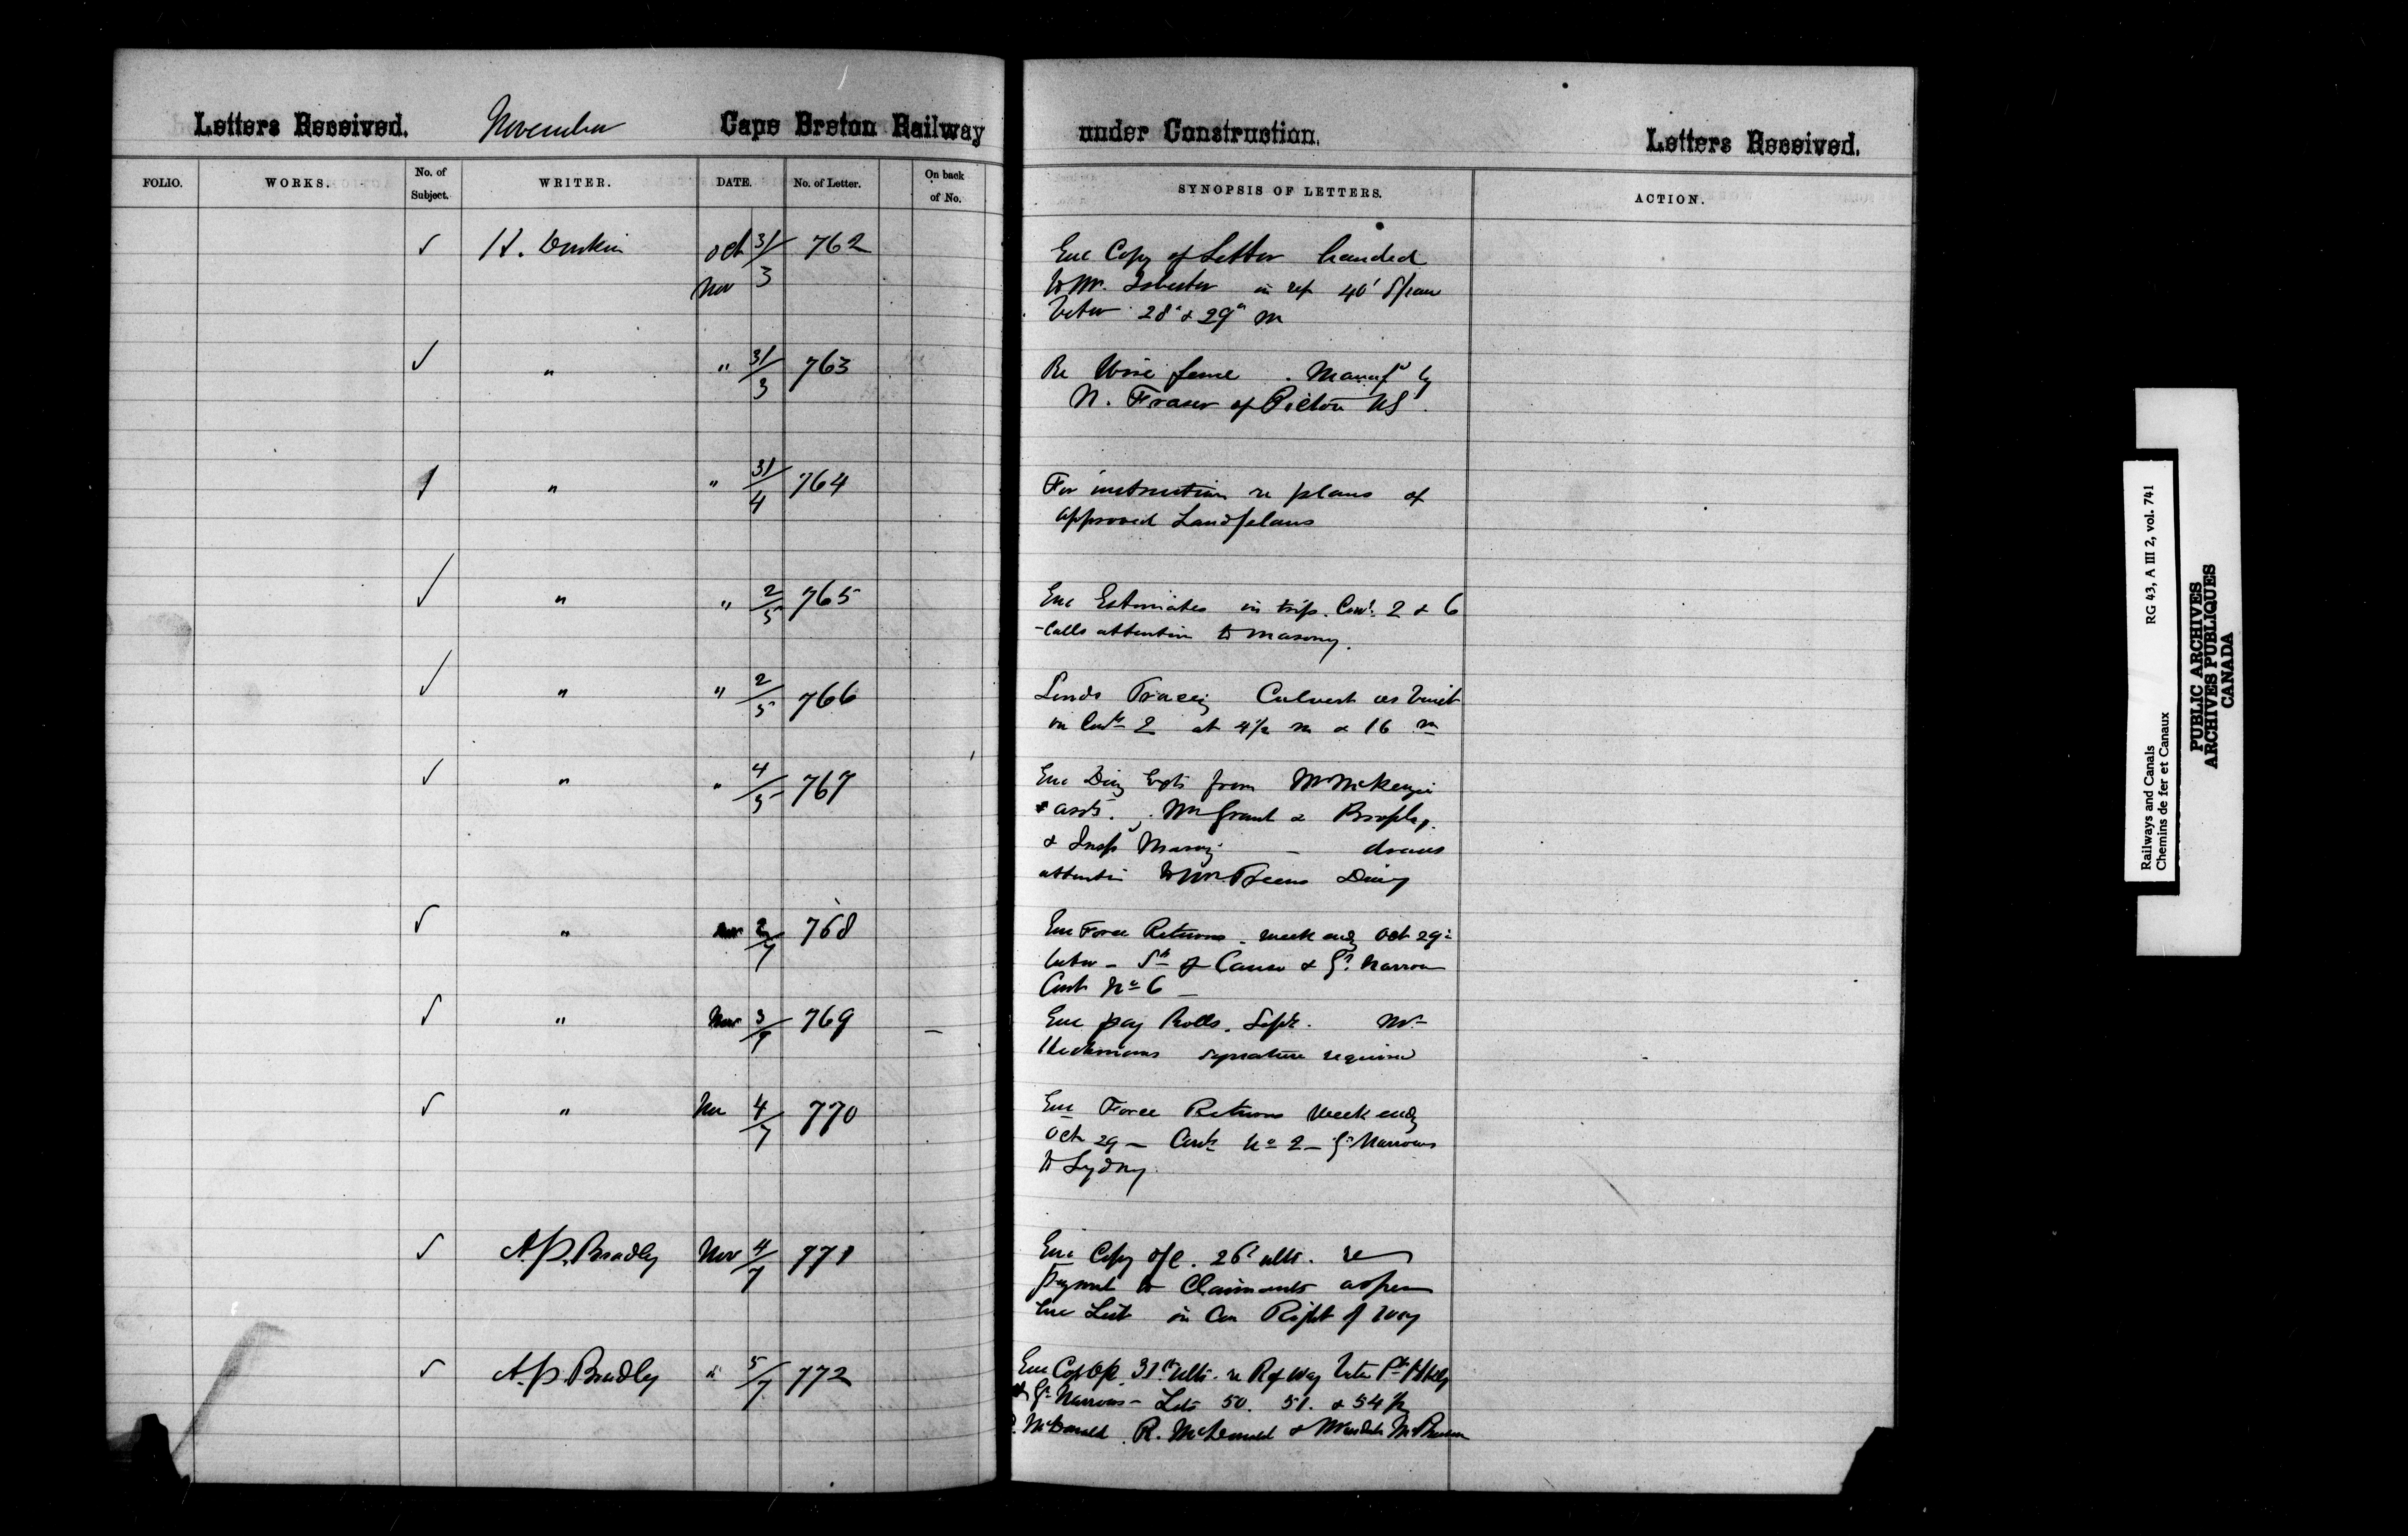 Letters Received. November Cape Breton Railway under Construction. Letters Received.
FOLIO. WORKS. No. of Subject. WRITER. DATE. No. of Letter. On back of No. SYNOPSIS OF LETTERS. ACTION.
✓ H. Oct 31/ 762 Enc Copy of Letter handed
Nov 3 to Mr. in ref 40' Span
betw 28" & 29" m
✓ " " 31/3 763 Re Wire fence . Manufd by
N. Fraser of Pictou NS.
✓ " " 31/4 764 For instruction re plans of
approved Land plans
✓ " " 2/5 765 Enc Estimates in trip. Cont. 2 & 6
- Calls attention to masonry.
✓ " " 2/5 766 Sends Tracing Culvert as built
on Cont 2 at 4½ m & 16 m
✓ " " 4/5 767 Enc Diary from Mr McKenzie
& assts. Mr Grant &
& Insp Masony - draws
attentin to Mr Diary
✓ " Nov 2/7 768 Enc Force Returns . week endg Oct 29th
betw - St of Canso & Gd Narrow
Cont No 6 -
✓ " Nov 3/9 769 - Enc pay Rolls. Sept. Mr
signature required
✓ " Nov 4/7 770 Enc Force Returns Week endg
Oct 29 - Cont No 2 - Gd Narrows
to Sydney.
✓ A.P. Bradley Nov 4/7 771 Enc Copy o/c. 26th ulto. re
payment to Claimants as per
Enc List in Con Right of Way
✓ A.P. Bradley " 5/7 772 Enc Cop o/c 31st ulto. re R of Way betw Pt
Gd Narrows - Lots 50. 51. & 54
McDonald . R. McDonald &
Railways and Canals RG 43, A III 2, vol. 741
Chemins de fer et Canaux
PUBLIC ARCHIVES
ARCHIVES PUBLIQUES
CANADA